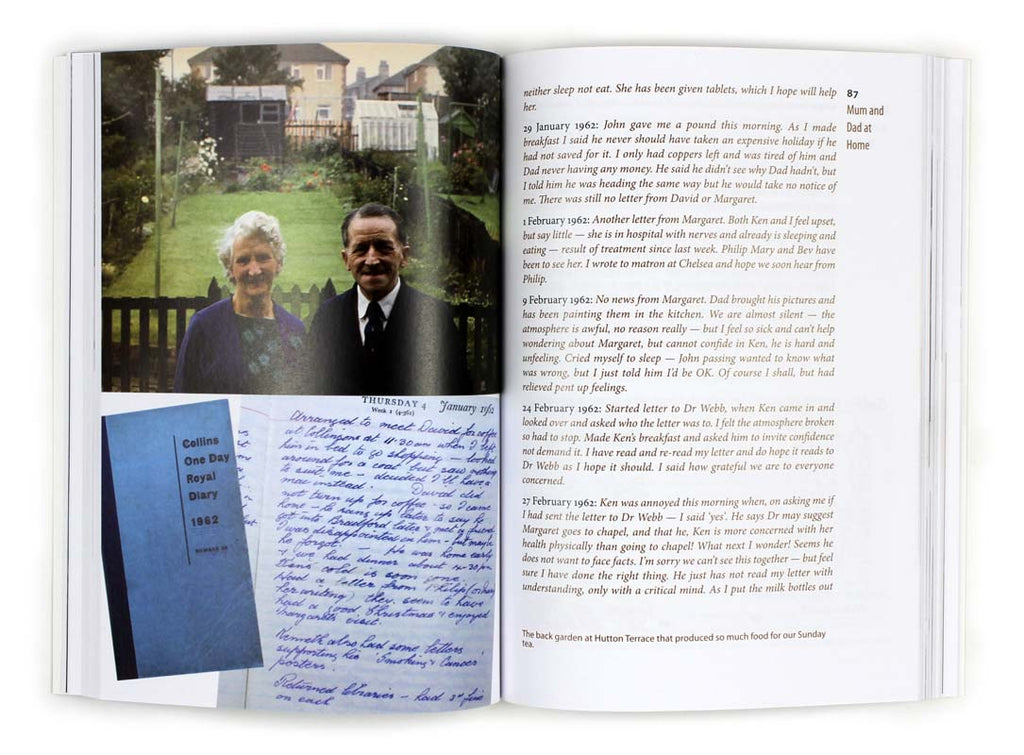 Collins
One Day
Royal
Diary
1962
THURSDAY 4 January 1962
Week 1 (4-361)
Arranged to meet David for coffee
at Collinsons at 11.30 am when I left
him in bed to go shopping — looked
around for a coat but saw nothing
to suit me — decided I'll have a
mac instead. David did
not turn up for coffee — so I came
home — he rang up later to say he
got into Bradford later & met a friend
I was disappointed in him — but maybe
he forgot — He was home early
& we had dinner about
cold is soon gone.
a letter from Philip
they seem to have
had a good Christmas & enjoyed
Margaret's visit.
Kenneth also had some letters
supporting his Smoking & Cancer
posters.
Returned libraries — had 3d fine
on each
neither sleep not eat. She has been given tablets, which I hope will help
her.
29 January 1962: John gave me a pound this morning. As I made
breakfast I said he never should have taken an expensive holiday if he
had not saved for it. I only had coppers left and was tired of him and
Dad never having any money. He said he didn't see why Dad hadn't, but
I told him he was heading the same way but he would take no notice of
me. There was still no letter from David or Margaret.
1 February 1962: Another letter from Margaret. Both Ken and I feel upset,
but say little — she is in hospital with nerves and already is sleeping and
eating — result of treatment since last week. Philip Mary and Bev have
been to see her. I wrote to matron at Chelsea and hope we soon hear from
Philip.
9 February 1962: No news from Margaret. Dad brought his pictures and
has been painting them in the kitchen. We are almost silent — the
atmosphere is awful, no reason really — but I feel so sick and can't help
wondering about Margaret, but cannot confide in Ken, he is hard and
unfeeling. Cried myself to sleep — John passing wanted to know what
was wrong, but I just told him I'd be OK. Of course I shall, but had
relieved pent up feelings.
24 February 1962: Started letter to Dr Webb, when Ken came in and
looked over and asked who the letter was to. I felt the atmosphere broken
so had to stop. Made Ken's breakfast and asked him to invite confidence
not demand it. I have read and re-read my letter and do hope it reads to
Dr Webb as I hope it should. I said how grateful we are to everyone
concerned.
27 February 1962: Ken was annoyed this morning when, on asking me if
I had sent the letter to Dr Webb — I said 'yes'. He says Dr may suggest
Margaret goes to chapel, and that he, Ken is more concerned with her
health physically than going to chapel! What next I wonder! Seems he
does not want to face facts. I'm sorry we can't see this together — but feel
sure I have done the right thing. He just has not read my letter with
understanding, only with a critical mind. As I put the milk bottles out
The back garden at Hutton Terrace that produced so much food for our Sunday
tea.
87
Mum and
Dad at
Home